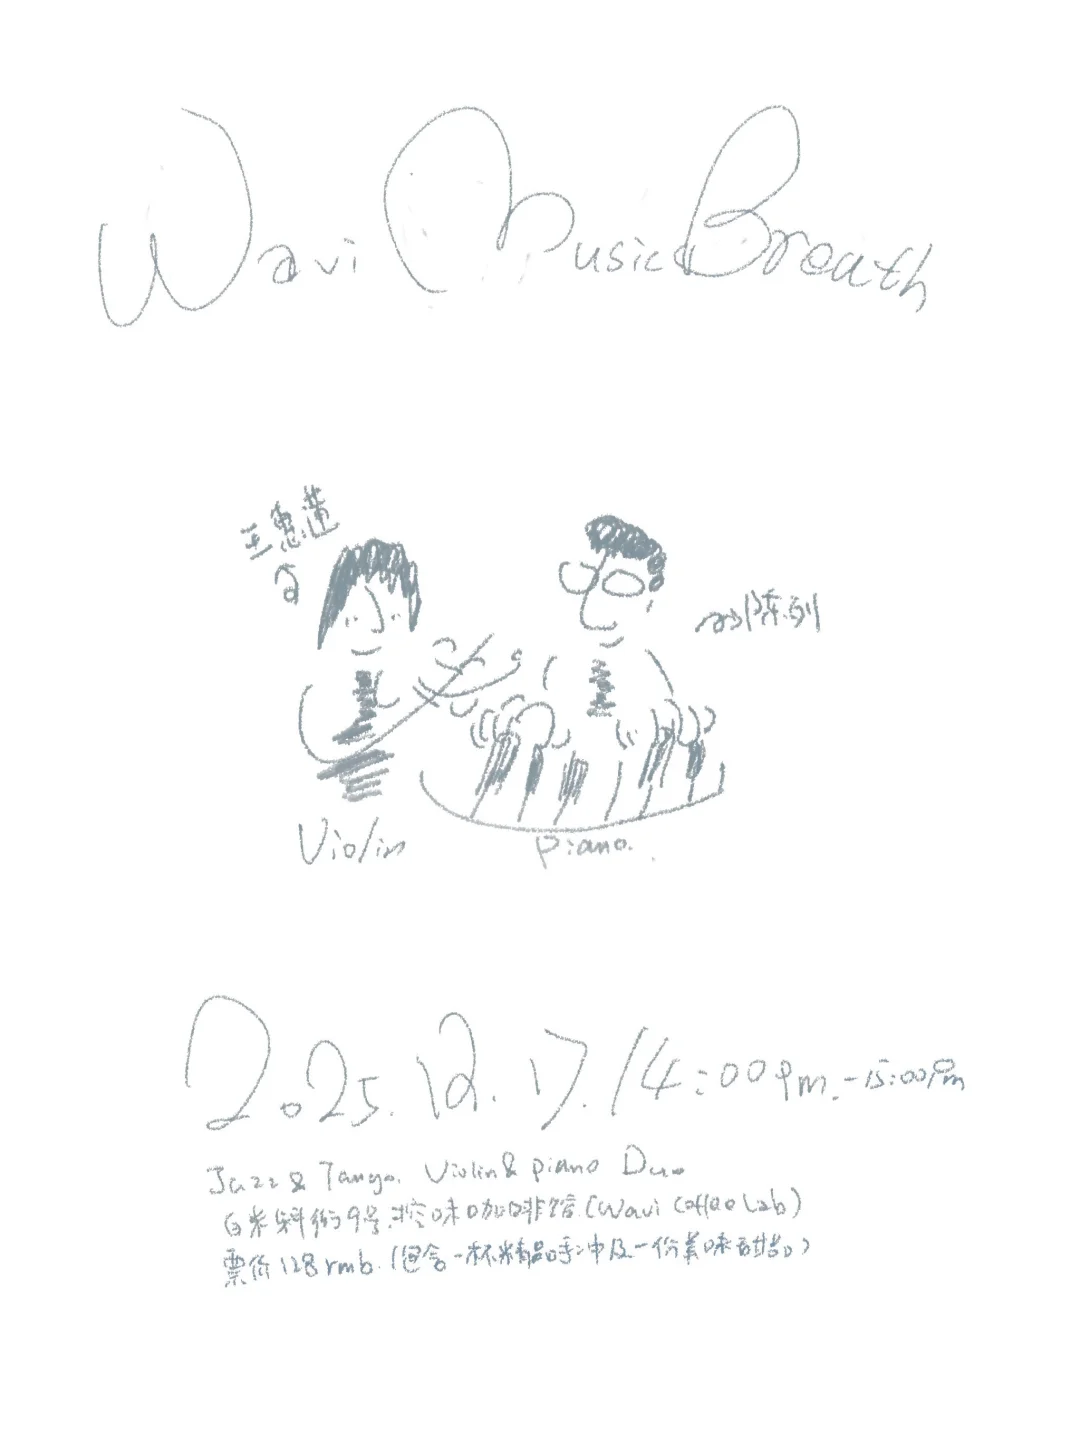 Wavi Music Breath
王惠莲
陈列
Violin
Piano.
2025.12.17.14:00pm.-15:00pm
Jazz & Tango. Violin & piano Duo
白米斜街9号.挖味咖啡馆.(Wavi Coffee Lab)
票价128rmb.(包含一杯精品手冲及一份美味甜品)